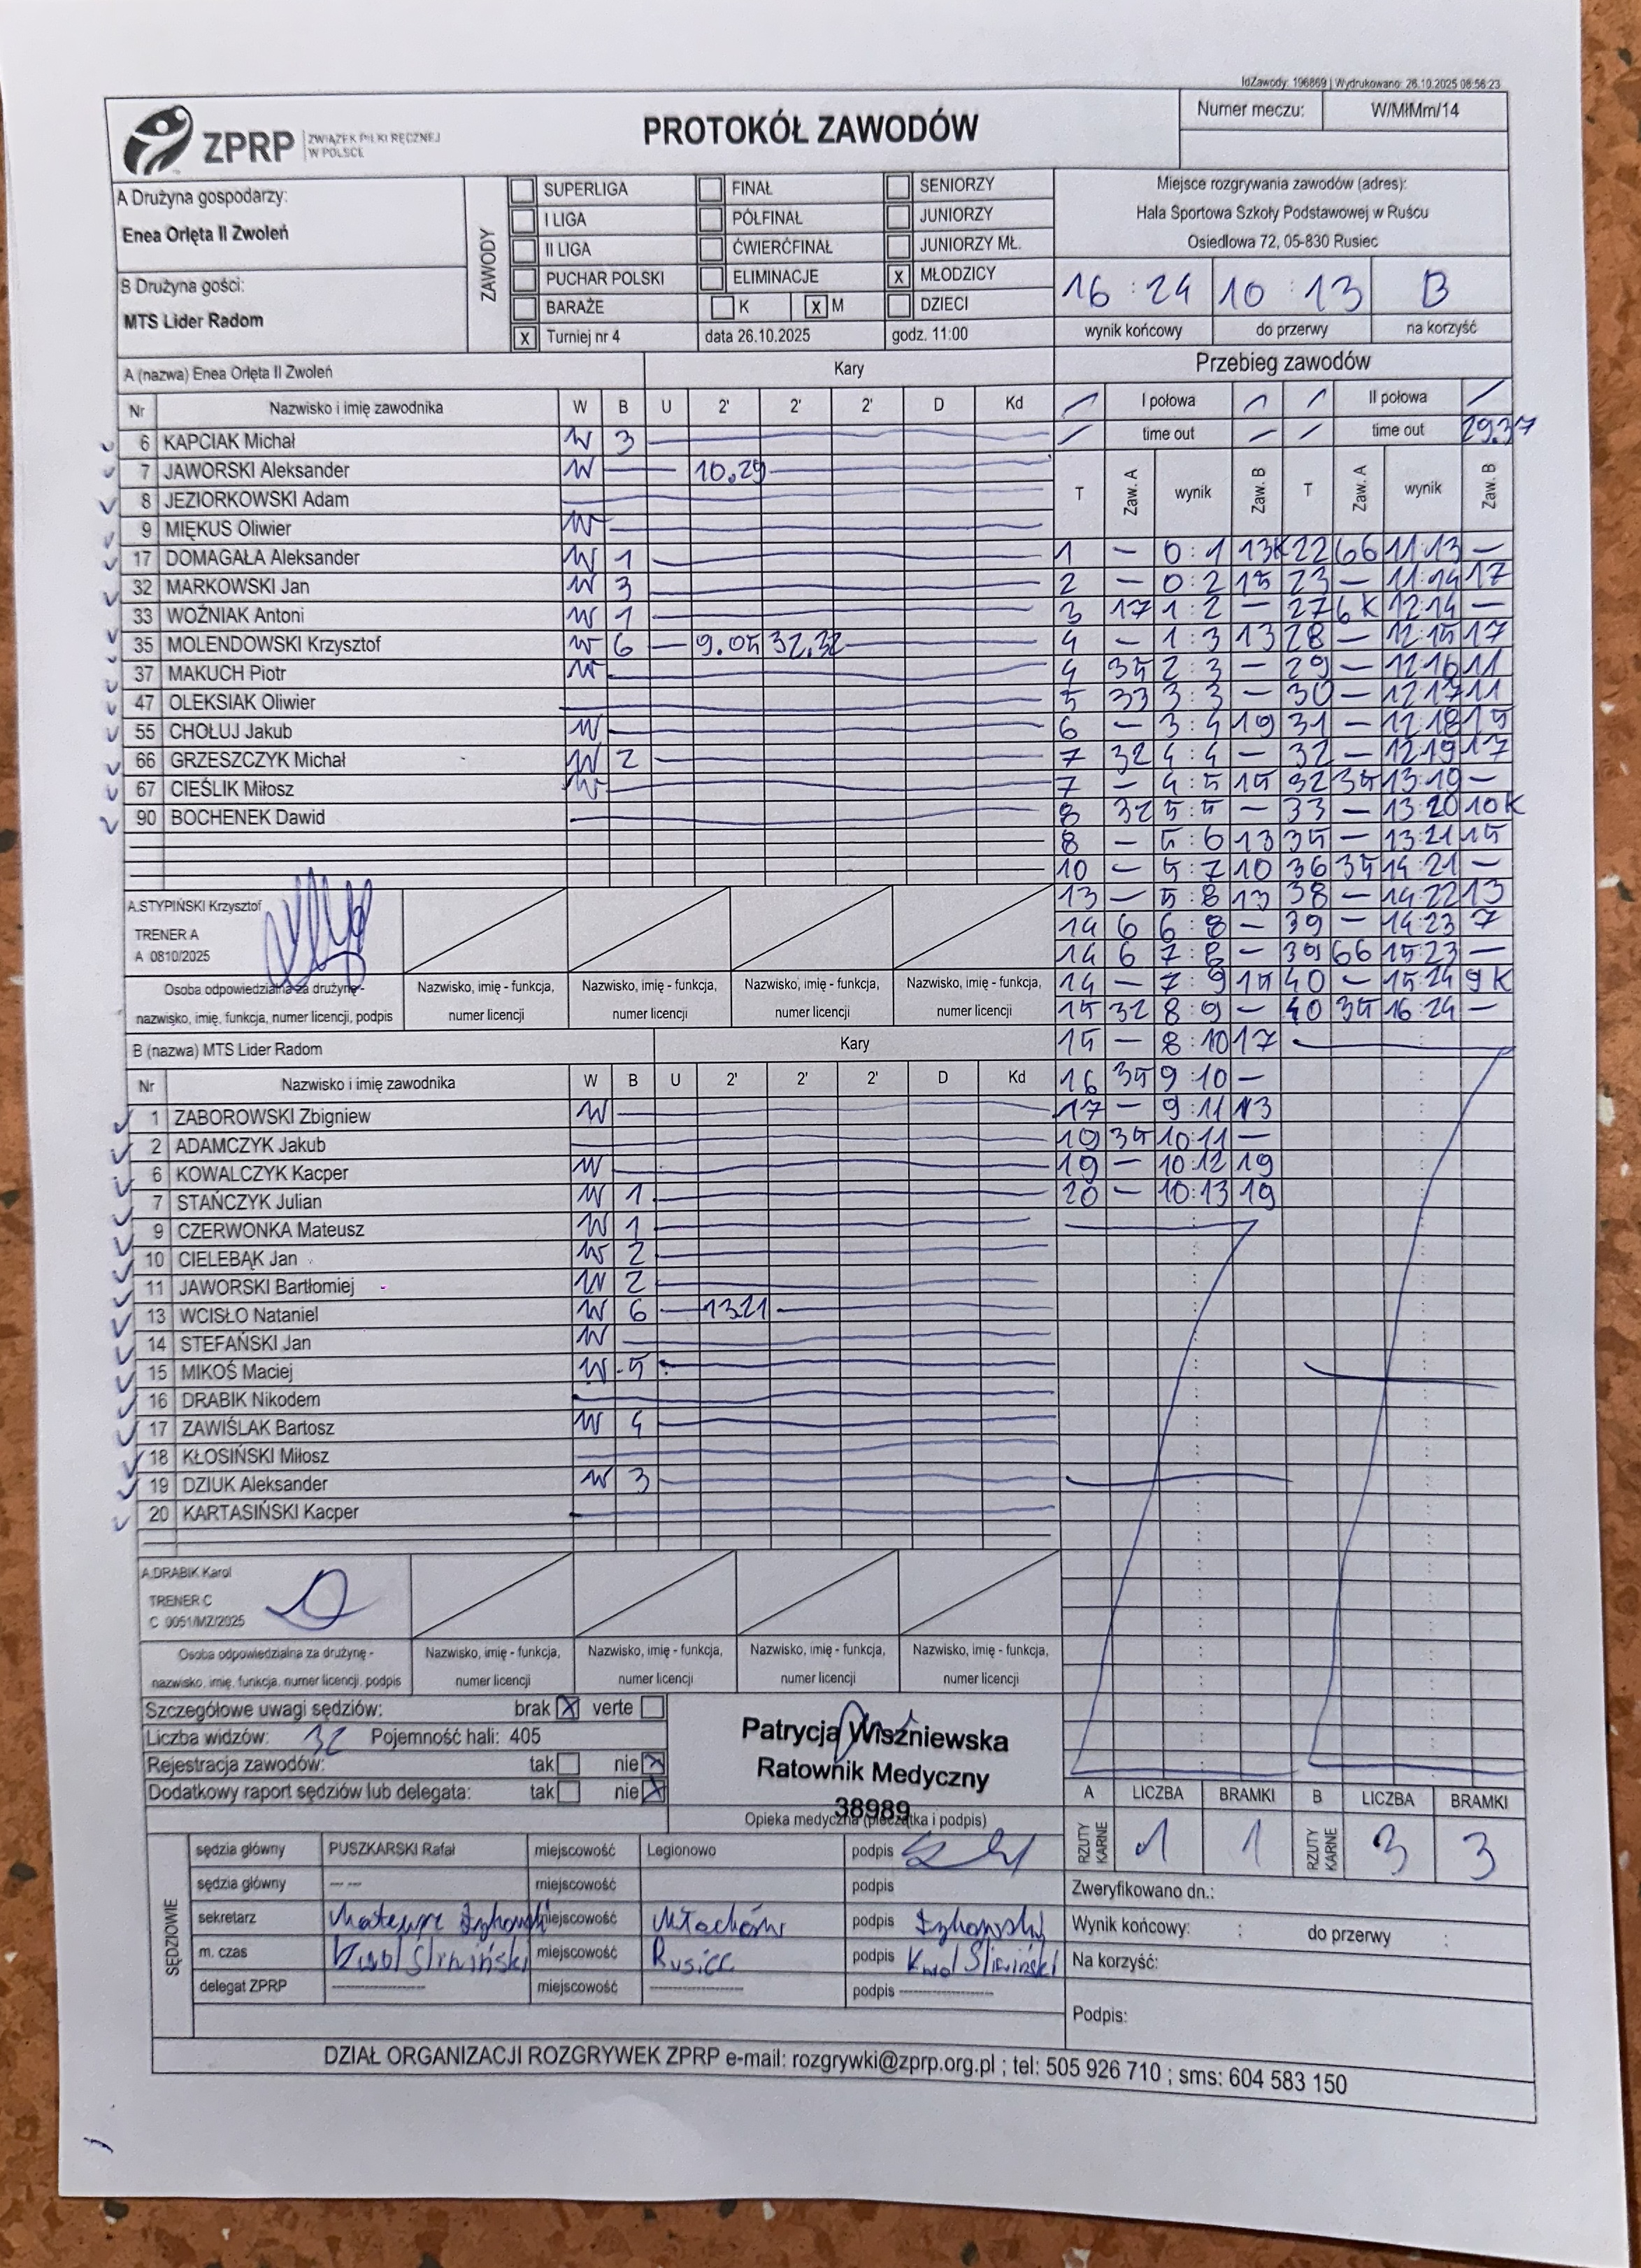 IdZawody: 196869 | Wydrukowano: 26.10.2025 08:56:23
ZPRP ZWIĄZEK PIŁKI RĘCZNEJ W POLSCE
PROTOKÓŁ ZAWODÓW
Numer meczu: W/MłMm/14
A Drużyna gospodarzy:
Enea Orlęta II Zwoleń
B Drużyna gości:
MTS Lider Radom
ZAWODY
SUPERLIGA FINAŁ SENIORZY
I LIGA PÓŁFINAŁ JUNIORZY
II LIGA ĆWIERĆFINAŁ JUNIORZY MŁ.
PUCHAR POLSKI ELIMINACJE X MŁODZICY
BARAŻE K X M DZIECI
X Turniej nr 4 data 26.10.2025 godz. 11:00
Miejsce rozgrywania zawodów (adres):
Hala Sportowa Szkoły Podstawowej w Ruścu
Osiedlowa 72, 05-830 Rusiec
16 : 24 10 : 13 B
wynik końcowy do przerwy na korzyść
A (nazwa) Enea Orlęta II Zwoleń Kary
Nr Nazwisko i imię zawodnika W B U 2' 2' 2' D Kd
6 KAPCIAK Michał W 3
7 JAWORSKI Aleksander W 10.29
8 JEZIORKOWSKI Adam
9 MIĘKUS Oliwier W
17 DOMAGAŁA Aleksander W 1
32 MARKOWSKI Jan W 3
33 WOŹNIAK Antoni W 1
35 MOLENDOWSKI Krzysztof W 6 9.05 32.32
37 MAKUCH Piotr W
47 OLEKSIAK Oliwier
55 CHOŁUJ Jakub W
66 GRZESZCZYK Michał W 2
67 CIEŚLIK Miłosz W
90 BOCHENEK Dawid
A.STYPIŃSKI Krzysztof
TRENER A
A 0810/2025
Osoba odpowiedzialna za drużynę - Nazwisko, imię - funkcja, Nazwisko, imię - funkcja, Nazwisko, imię - funkcja, Nazwisko, imię - funkcja,
nazwisko, imię, funkcja, numer licencji, podpis numer licencji numer licencji numer licencji numer licencji
B (nazwa) MTS Lider Radom Kary
Nr Nazwisko i imię zawodnika W B U 2' 2' 2' D Kd
1 ZABOROWSKI Zbigniew W
2 ADAMCZYK Jakub
6 KOWALCZYK Kacper W
7 STAŃCZYK Julian W 1
9 CZERWONKA Mateusz W 1
10 CIELEBĄK Jan W 2
11 JAWORSKI Bartłomiej W 2
13 WCISŁO Nataniel W 6 13.21
14 STEFAŃSKI Jan W
15 MIKOŚ Maciej W 5
16 DRABIK Nikodem
17 ZAWIŚLAK Bartosz W 4
18 KŁOSIŃSKI Miłosz
19 DZIUK Aleksander W 3
20 KARTASIŃSKI Kacper
A.DRABIK Karol
TRENER C
C 0051/MZ/2025
Osoba odpowiedzialna za drużynę - Nazwisko, imię - funkcja, Nazwisko, imię - funkcja, Nazwisko, imię - funkcja, Nazwisko, imię - funkcja,
nazwisko, imię, funkcja, numer licencji, podpis numer licencji numer licencji numer licencji numer licencji
Przebieg zawodów
I połowa II połowa
time out time out 29.37
T Zaw. A wynik Zaw. B T Zaw. A wynik Zaw. B
1 – 0:1 13K 22 66 11:13 –
2 – 0:2 15 23 – 11:14 17
3 17 1:2 – 27 6K 12:14 –
4 – 1:3 13 28 – 12:15 17
4 35 2:3 – 29 – 12:16 11
5 33 3:3 – 30 – 12:17 11
6 – 3:4 19 31 – 12:18 15
7 32 4:4 – 32 – 12:19 17
7 – 4:5 15 32 35 13:19 –
8 32 5:5 – 33 – 13:20 10K
8 – 5:6 13 35 – 13:21 15
10 – 5:7 10 36 35 14:21 –
13 – 5:8 13 38 – 14:22 13
14 6 6:8 – 39 – 14:23 7
14 6 7:8 – 39 66 15:23 –
14 – 7:9 15 40 – 15:24 9K
15 32 8:9 – 40 35 16:24 –
15 – 8:10 17
16 35 9:10 –
17 – 9:11 13
19 35 10:11 –
19 – 10:12 19
20 – 10:13 19
Szczegółowe uwagi sędziów: brak X verte
Liczba widzów: 32 Pojemność hali: 405
Rejestracja zawodów: tak nie X
Dodatkowy raport sędziów lub delegata: tak nie X
Patrycja Wiszniewska
Ratownik Medyczny
38989
Opieka medyczna (pieczątka i podpis)
A LICZBA BRAMKI B LICZBA BRAMKI
RZUTY KARNE 1 1 RZUTY KARNE 3 3
SĘDZIOWIE
sędzia główny PUSZKARSKI Rafał miejscowość Legionowo podpis
sędzia główny --- --- miejscowość podpis
sekretarz miejscowość podpis
m. czas Karol Śliwiński miejscowość Rusiec podpis Karol Śliwiński
delegat ZPRP miejscowość podpis
Zweryfikowano dn.:
Wynik końcowy: : do przerwy :
Na korzyść:
Podpis:
DZIAŁ ORGANIZACJI ROZGRYWEK ZPRP e-mail: rozgrywki@zprp.org.pl ; tel: 505 926 710 ; sms: 604 583 150